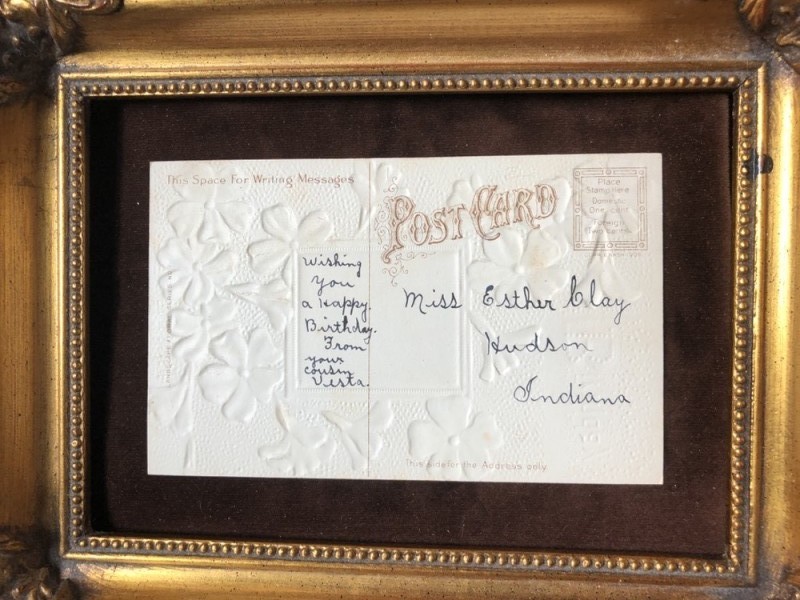 This Space For Writing Messages
POST CARD
Place
Stamp Here
Domestic
One cent
Foreign
Two cents
Wishing
you
a Happy
Birthday.
From
your
cousin
Vesta.
Miss Esther Clay
Hudson
Indiana
This side for the Address only